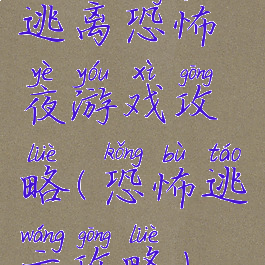 逃离恐怖
yè yóu xì gōng
夜游戏攻
lüè kǒng bù táo
略(恐怖逃
wáng gōng lüè
亡攻略)